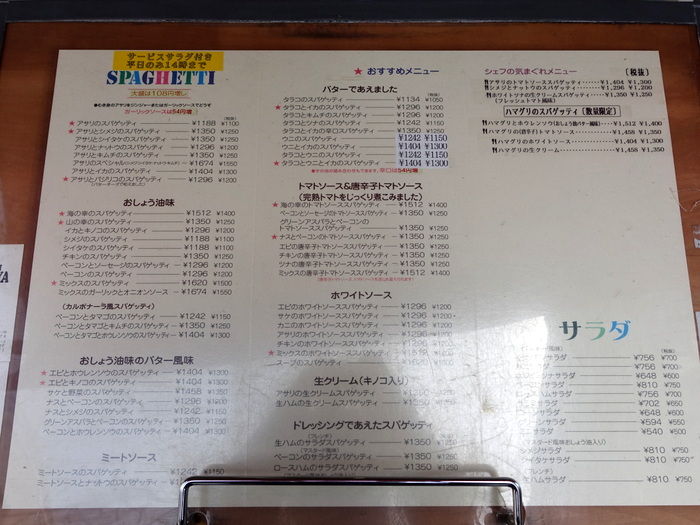 サービスサラダ付き
平日のみ14時まで
SPAGHETTI
大盛は108円増し
ガーリックソースは54円増
(税抜)
★アサリのスパゲッティ ¥1188 ¥1100
★アサリとシメジのスパゲッティ ¥1350 ¥1250
アサリとシイタケのスパゲッティ ¥1350 ¥1250
アサリとナットウのスパゲッティ ¥1296 ¥1200
アサリとキムチのスパゲッティ ¥1350 ¥1250
¥1674 ¥1550
アサリとイカのスパゲッティ ¥1404 ¥1300
★アサリとバジリコのスパゲッティ ¥1296 ¥1200
おしょう油味
★海の幸のスパゲッティ ¥1512 ¥1400
★山の幸のスパゲッティ ¥1350 ¥1250
イカとキノコのスパゲッティ ¥1296 ¥1200
シメジのスパゲッティ ¥1188 ¥1100
シイタケのスパゲッティ ¥1188 ¥1100
チキンのスパゲッティ ¥1350 ¥1250
ベーコンとソーセージのスパゲッティ ¥1296 ¥1200
ベーコンのスパゲッティ ¥1296 ¥1200
★ミックスのスパゲッティ ¥1620 ¥1500
ミックスのガーリックとオニオンソース ¥1674 ¥1550
(カルボナーラ風スパゲッティ)
ベーコンとタマゴのスパゲッティ ¥1242 ¥1150
ベーコンとタマゴとキムチのスパゲッティ ¥1350 ¥1250
ベーコンとタマゴとイカのスパゲッティ ¥1404 ¥1300
おしょう油味のバター風味
★エビとホウレンソウのスパゲッティ ¥1404 ¥1300
★エビとキノコのスパゲッティ ¥1404 ¥1300
サケと野菜のスパゲッティ ¥1458 ¥1350
ナスとベーコンのスパゲッティ ¥1296 ¥1200
ナスとシメジのスパゲッティ ¥1242 ¥1150
グリーンアスパラとベーコンのスパゲッティ ¥1350 ¥1250
ベーコンとホウレンソウのスパゲッティ ¥1404 ¥1300
ミートソース
ミートソースのスパゲッティ ¥1242 ¥1150
ミートソースとナットウのスパゲッティ
★おすすめメニュー
バターであえました
タラコのスパゲッティ ¥1134 ¥1050
★タラコとイカのスパゲッティ ¥1296 ¥1200
タラコとキムチのスパゲッティ ¥1296 ¥1200
タラコとナットウのスパゲッティ ¥1242 ¥1150
タラコとイカの辛口スパゲッティ ¥1350 ¥1250
ウニのスパゲッティ ¥1242 ¥1150
ウニとイカのスパゲッティ ¥1404 ¥1300
タラコとウニのスパゲッティ ¥1242 ¥1150
★タラコとウニとイカのスパゲッティ ¥1404 ¥1300
トマトソース&唐辛子トマトソース
(完熟トマトをじっくり煮こみました)
★海の幸のトマトソーススパゲッティ ¥1512 ¥1400
ベーコンとソーセージのトマトソーススパゲッティ ¥1350 ¥1250
グリーンアスパラとベーコンの
トマトソーススパゲッティ ¥1350 ¥1250
★ナスとベーコンのトマトソーススパゲッティ ¥1350 ¥1250
エビの唐辛子トマトソーススパゲッティ ¥1350 ¥1250
チキンの唐辛子トマトソーススパゲッティ ¥1350 ¥1250
ツナの唐辛子トマトソーススパゲッティ ¥1350 ¥1250
ミックスの唐辛子トマトソーススパゲッティ ¥1512 ¥1400
ホワイトソース
エビのホワイトソーススパゲッティ ¥1296 ¥1200
サケのホワイトソーススパゲッティ ¥1296 ¥1200
カニのホワイトソーススパゲッティ ¥1296 ¥1200
アサリのホワイトソーススパゲッティ ¥1296 ¥1200
チキンのホワイトソーススパゲッティ ¥1296
★ミックスのホワイトソーススパゲッティ
スープのスパゲッティ
生クリーム(キノコ入り)
アサリの生クリームスパゲッティ
生ハムの生クリームスパゲッティ
ドレッシングであえたスパゲッティ
(フレンチ)
生ハムのサラダスパゲッティ ¥1350
(マスタード風味)
ベーコンのサラダスパゲッティ ¥1350 ¥1250
ロースハムのサラダスパゲッティ ¥1350 ¥1250
シェフの気まぐれメニュー [税抜]
アサリのトマトソーススパゲッティ ¥1,404 ¥1,300
シメジとナットウのスパゲッティ ¥1,296 ¥1,200
ホワイトツナの生クリームスパゲッティ ¥1,350 ¥1,250
(フレッシュトマト風味)
ハマグリのスパゲッティ[数量限定]
ハマグリとホウレンソウ(おしょう油バター風味) ¥1,512 ¥1,400
ハマグリの(唐辛子)トマトソース ¥1,458 ¥1,350
ハマグリのホワイトソース ¥1,404 ¥1,300
ハマグリの生クリーム ¥1,458 ¥1,350
サラダ
サラダ ¥756 ¥700
サラダ ¥756 ¥700
サラダ ¥648 ¥600
サラダ ¥810 ¥750
サラダ ¥756 ¥700
サラダ ¥702 ¥650
サラダ ¥648 ¥600
サラダ ¥594 ¥550
サラダ ¥540 ¥500
(マスタード風味おしょう油入り)
シメジサラダ ¥810 ¥750
シイタケサラダ ¥810 ¥750
(フレンチ)
生ハムサラダ ¥810 ¥750